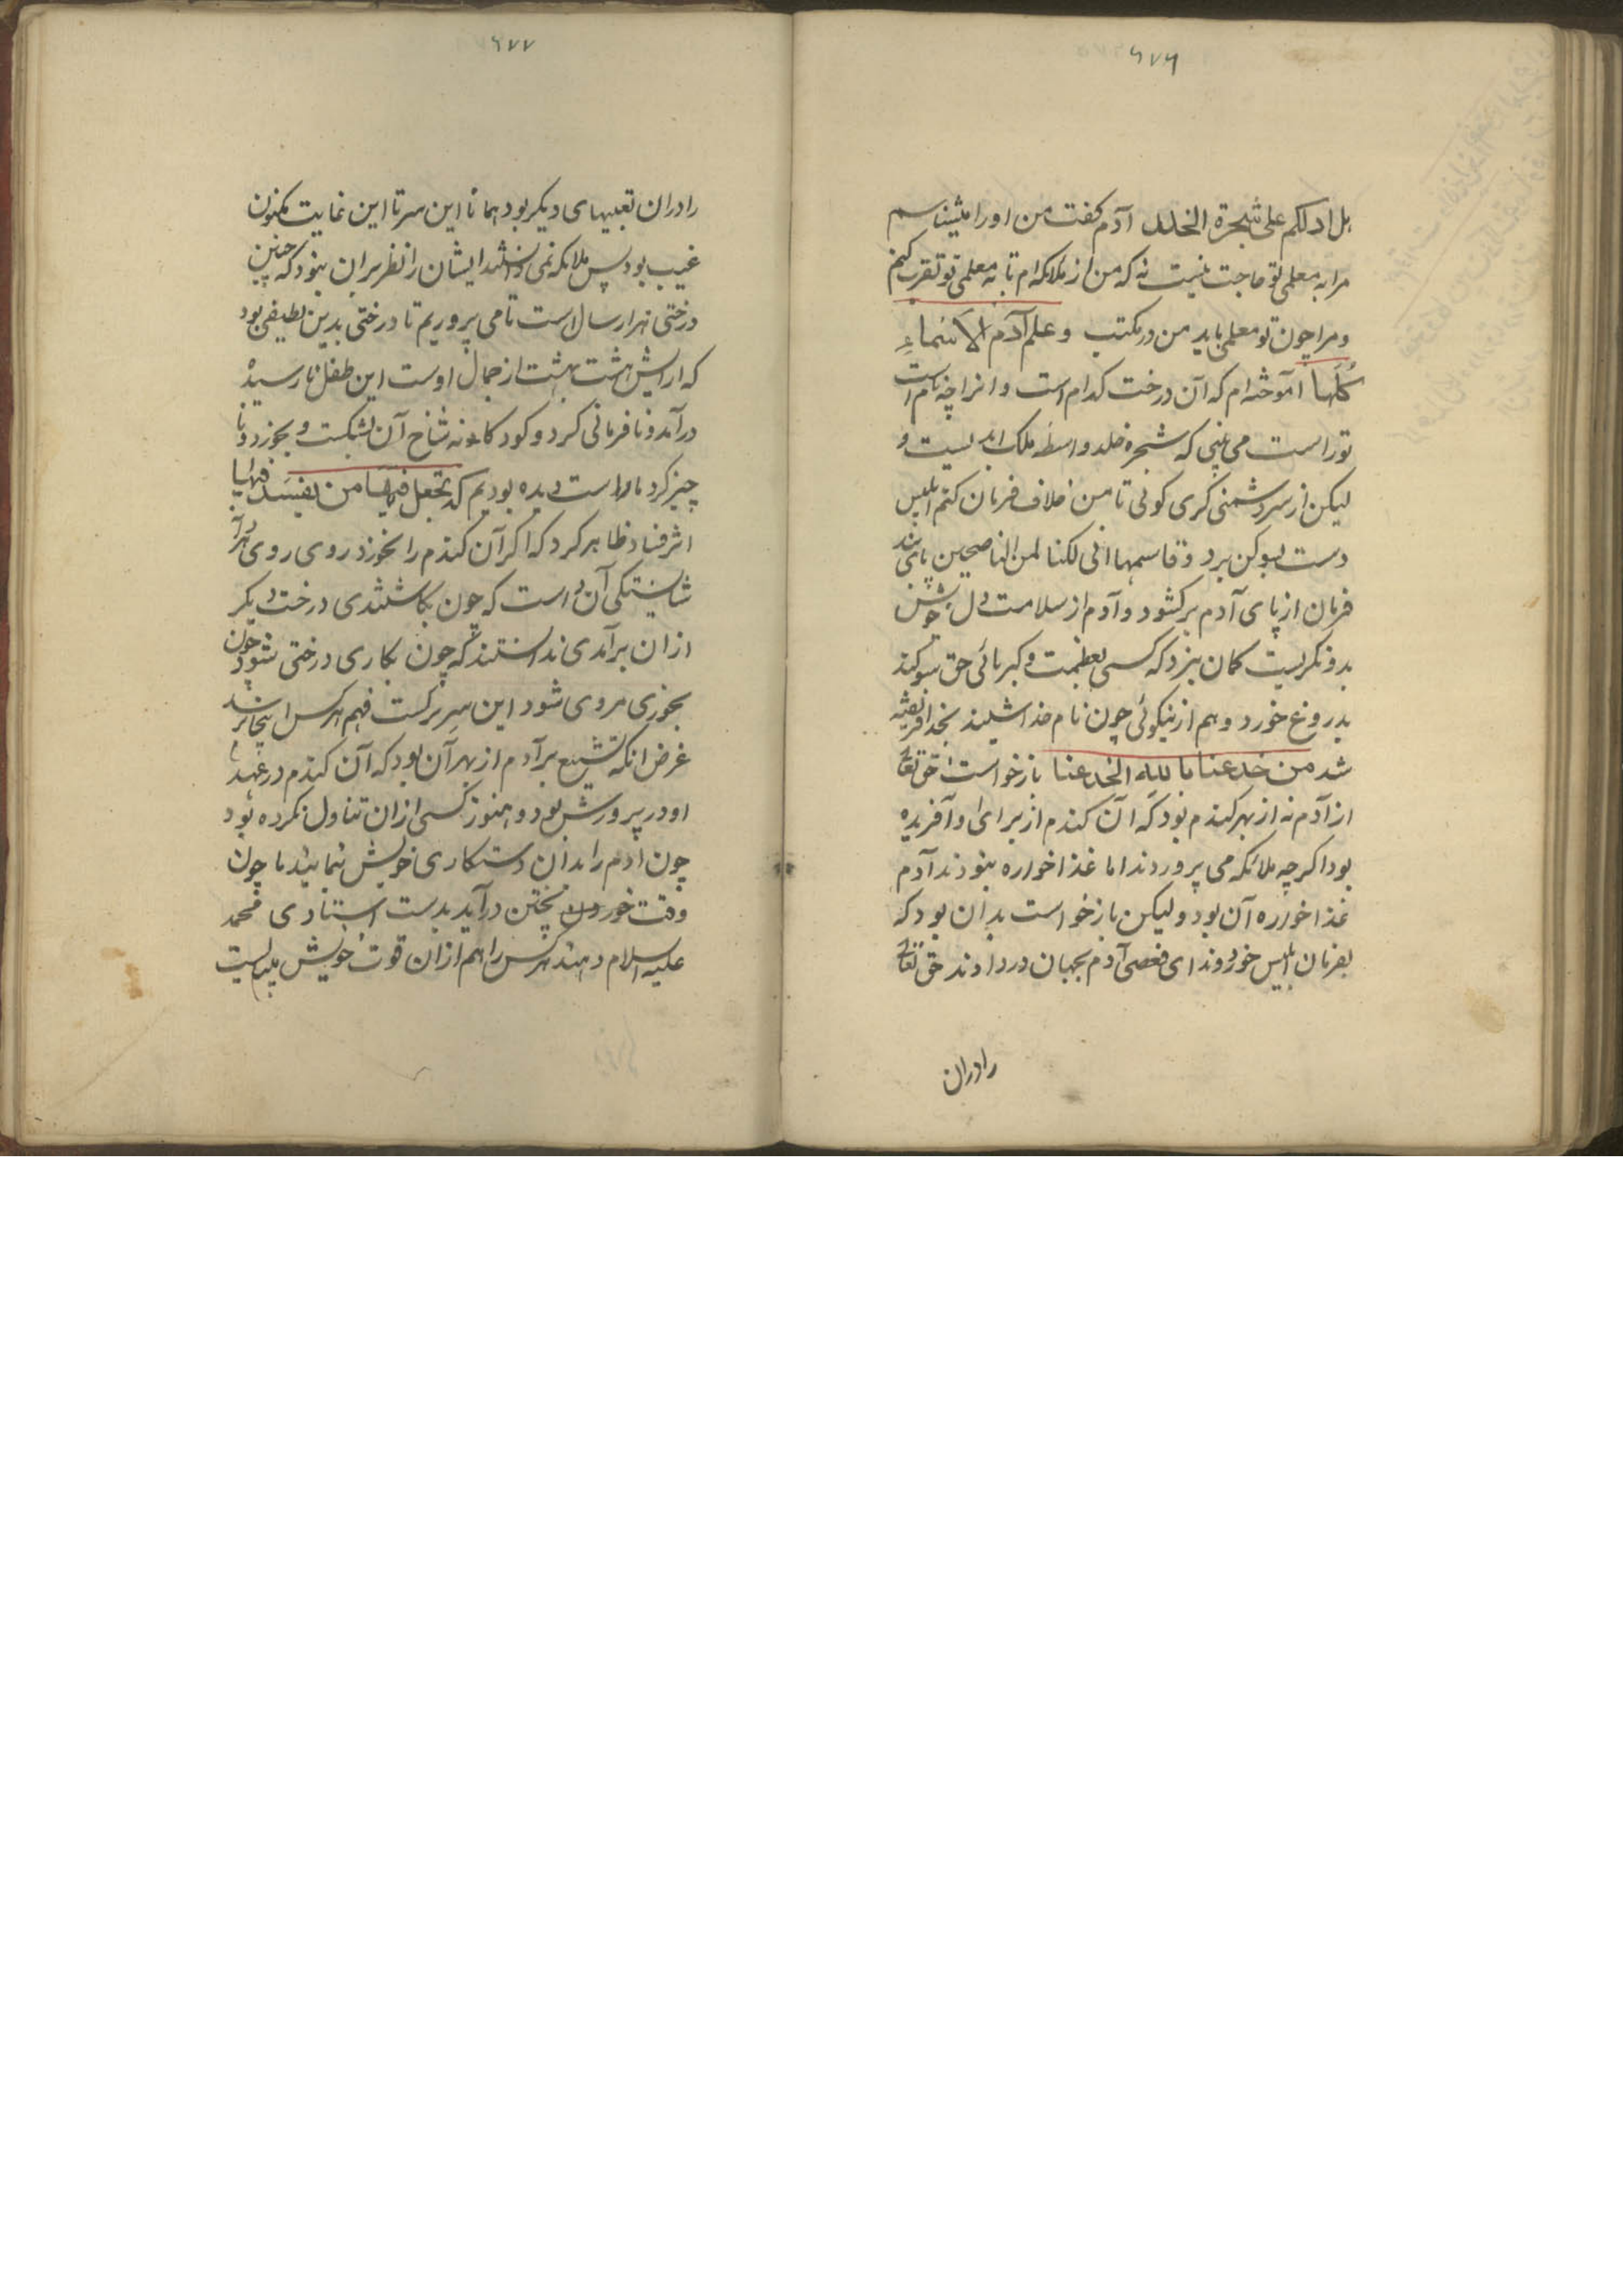 ۶۷۶
هل ادلکم علی شجرة الخلد آدم کفت من اورا میشناسم
مرا به معلمی تو حاجت نیست نه که من از ملائکه ام تا به معلمی تو تقرب کنم
و مرا چون تو معلمی باید من در مکتب و علم آدم الاسماء
کلها آموخته ام که آن درخت کدام است و انرا چه نام است
تو راست می بینی که شجره خلد و اسطه ملک ابد نیست و
لیکن از سر دشمنی کری کوئی تا من خلاف فرمان کنم ابلیس
دست بسوکن برد و قاسمهما انی لکما لمن الناصحین پای بند
فرمان از پای آدم برکشود و آدم از سلامت دل خوش
بدو نکریست کمان نبرد که کسی بعظمت و کبریائی حق سوکند
بدروغ خورد و هم از نیکوئی چون نام خدا شنید بخدا فریفته
شد من خدعنا بالله انخدعنا بازخواست حق تعالی
از آدم نه از بهر کندم بود که آن کندم از برای او آفریده
بود اکر چه ملائکه می پروردند اما غذا خواره نبودند آدم
غذا خواره آن بود و لیکن بازخواست بدان بود که
بفرمان ابلیس خورد و ندای فعصی آدم بجهان در دادند حق تعالی
رادران
۶۷۷
رادران تعبیهای دیکر بود همانا این سر تا این غایت مکنون
غیب بود پس ملائکه نمی دانستند ایشان را نظر بران بنود که چنین
درختی هزار سال است تا می پروریم تا درختی بدین لطیفی بود
که ارایش هشت بهشت از جمال اوست این طفل نارسیده
درآمد و نافرمانی کرد و کودکانه شاخ آن بشکست و بخورد و نا
چیز کرد ما راست دیده بودیم که اتجعل فیها من یفسد فیها
اثر فساد ظاهر کرد که اکر آن کندم را نخورد روی روی هر آ
شایستکی آن است که چون بکاشتندی درخت دیکر
ازان برآمدی ندانستند که چون بکاری درختی شود چون
بخوری مروی شود این سر بزرکست فهم هر کس اینجا نرسد
غرض انکه تشنیع بر آدم از بهر آن بود که آن کندم در عهد
او در پرورش بود و هنوز کسی ازان تناول نکرده بود
چون آدم را بدان دستکاری خویش نمایند ما چون
وقت خوردن پختن درآید بدست استادی محمد
علیه السلام دهند هر کس را هم ازان قوت خویش میبایست